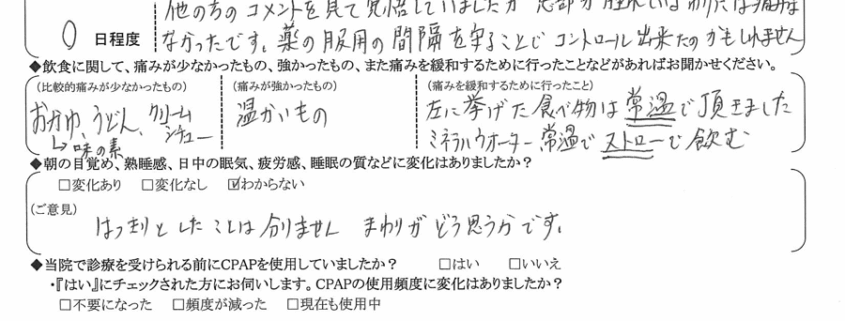 他の方のコメントを見て覚悟していましたが
0 日程度 なかったです。薬の服用の間隔を守ることでコントロール出来たのかもしれません
◆飲食に関して、痛みが少なかったもの、強かったもの、また痛みを緩和するために行ったことなどがあればお聞かせください。
(比較的痛みが少なかったもの) (痛みが強かったもの) (痛みを緩和するために行ったこと)
おかゆ、うどん、クリームシチュー 温かいもの 左に挙げた食べ物は常温で頂きました
↳味の素 ミネラルウオーター常温でストローで飲む
◆朝の目覚め、熟睡感、日中の眠気、疲労感、睡眠の質などに変化はありましたか?
□変化あり □変化なし ☑わからない
(ご意見)
はっきりとしたことは分りません まわりがどう思うかです。
◆当院で診療を受けられる前にCPAPを使用していましたか? □はい □いいえ
・『はい』にチェックされた方にお伺いします。CPAPの使用頻度に変化はありましたか?
□不要になった □頻度が減った □現在も使用中